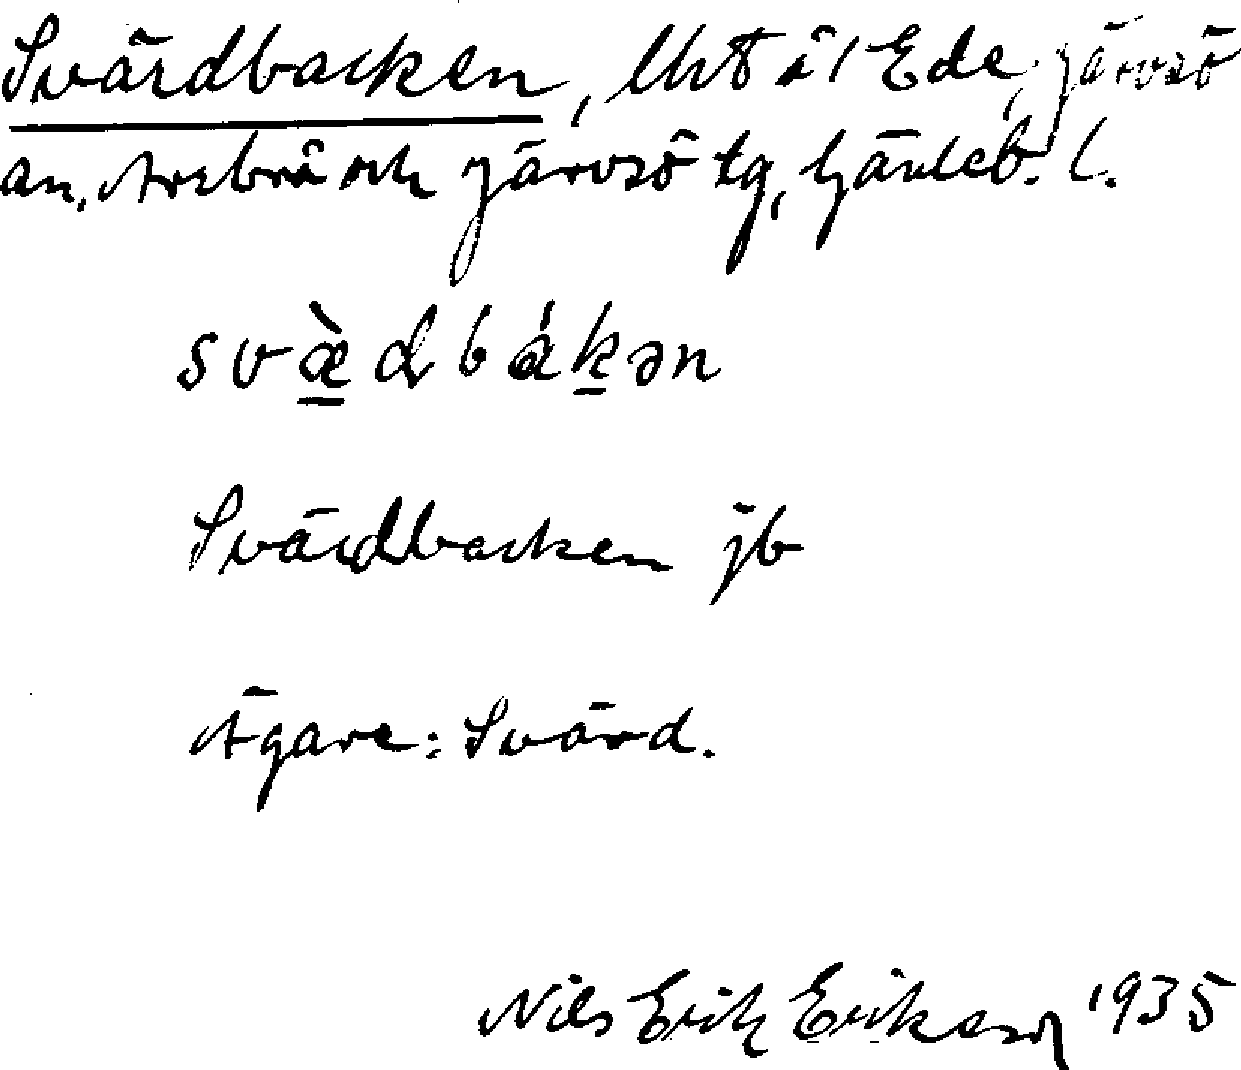 Svärdbacken, lht å 1 Ede, Järvsö
sn, Arebrå och Järvsö tg, Gävleb. l.
svæ̀dbákən
Svärdbacken jb
Ägare: Svärd.
Nils Erik Erikson 1935